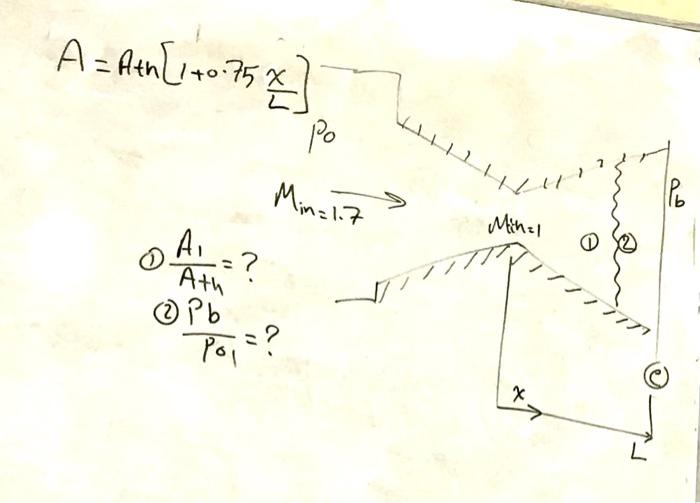 A = Ath[1+0.75 x/L]
p0
Min=1.7
Min=1
Pb
① A1/Ath = ?
② Pb/Po1 = ?
① ②
e
x
L